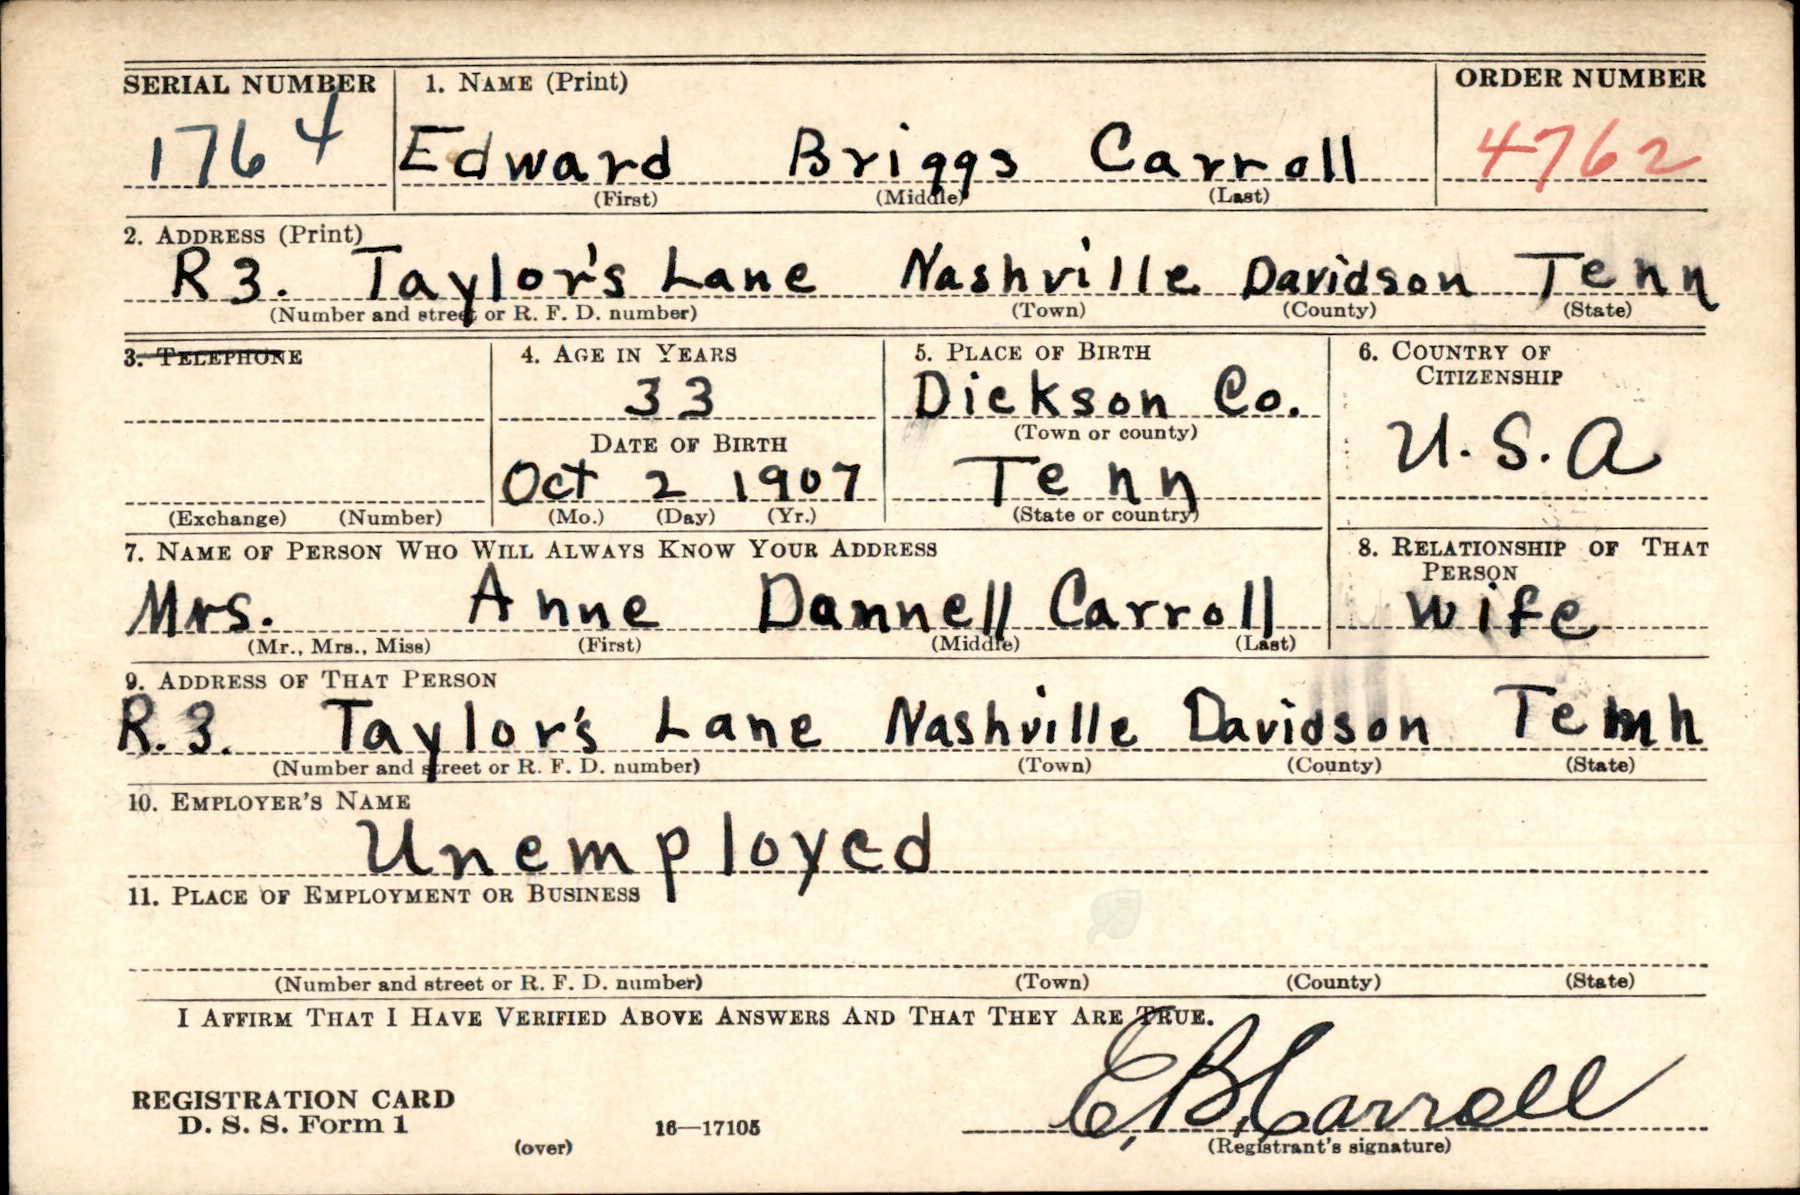 SERIAL NUMBER 1. NAME (Print) ORDER NUMBER
1764 Edward Briggs Carroll 4762
(First) (Middle) (Last)
2. ADDRESS (Print)
R 3. Taylor's Lane Nashville Davidson Tenn
(Number and street or R. F. D. number) (Town) (County) (State)
3. TELEPHONE 4. AGE IN YEARS 5. PLACE OF BIRTH 6. COUNTRY OF
CITIZENSHIP
33 Dickson Co.
(Town or county)
DATE OF BIRTH U.S.A
Oct 2 1907 Tenn
(Exchange) (Number) (Mo.) (Day) (Yr.) (State or country)
7. NAME OF PERSON WHO WILL ALWAYS KNOW YOUR ADDRESS 8. RELATIONSHIP OF THAT
PERSON
Mrs. Anne Dannell Carroll wife
(Mr., Mrs., Miss) (First) (Middle) (Last)
9. ADDRESS OF THAT PERSON
R. 3. Taylor's Lane Nashville Davidson Tenn
(Number and street or R. F. D. number) (Town) (County) (State)
10. EMPLOYER'S NAME
Unemployed
11. PLACE OF EMPLOYMENT OR BUSINESS
(Number and street or R. F. D. number) (Town) (County) (State)
I AFFIRM THAT I HAVE VERIFIED ABOVE ANSWERS AND THAT THEY ARE TRUE.
REGISTRATION CARD
D. S. S. Form 1 16—17105 E.B.Carroll
(over) (Registrant's signature)